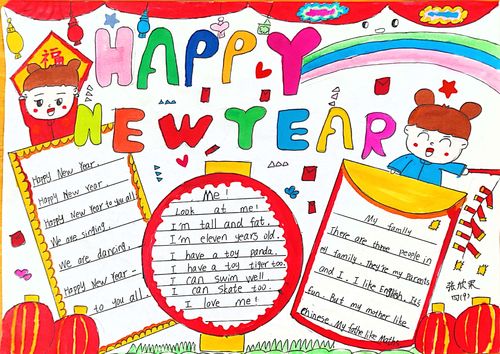 福
HAPPY
NEW YEAR
Happy New Year.
Happy New Year.
Happy New Year to you all.
We are singing.
We are dancing.
Happy New Year -
to you all.
Me!
Look at me!
I'm tall and fat.
I'm eleven years old.
I have a toy panda.
I have a toy tiger too.
I can swim well
I can skate too.
I love me!
My family
There are three people in
my family. They're my parents
and I. I like English. It's
fun. But my mother like
Chinese. My fathe like Maths.
张欣
四(9)